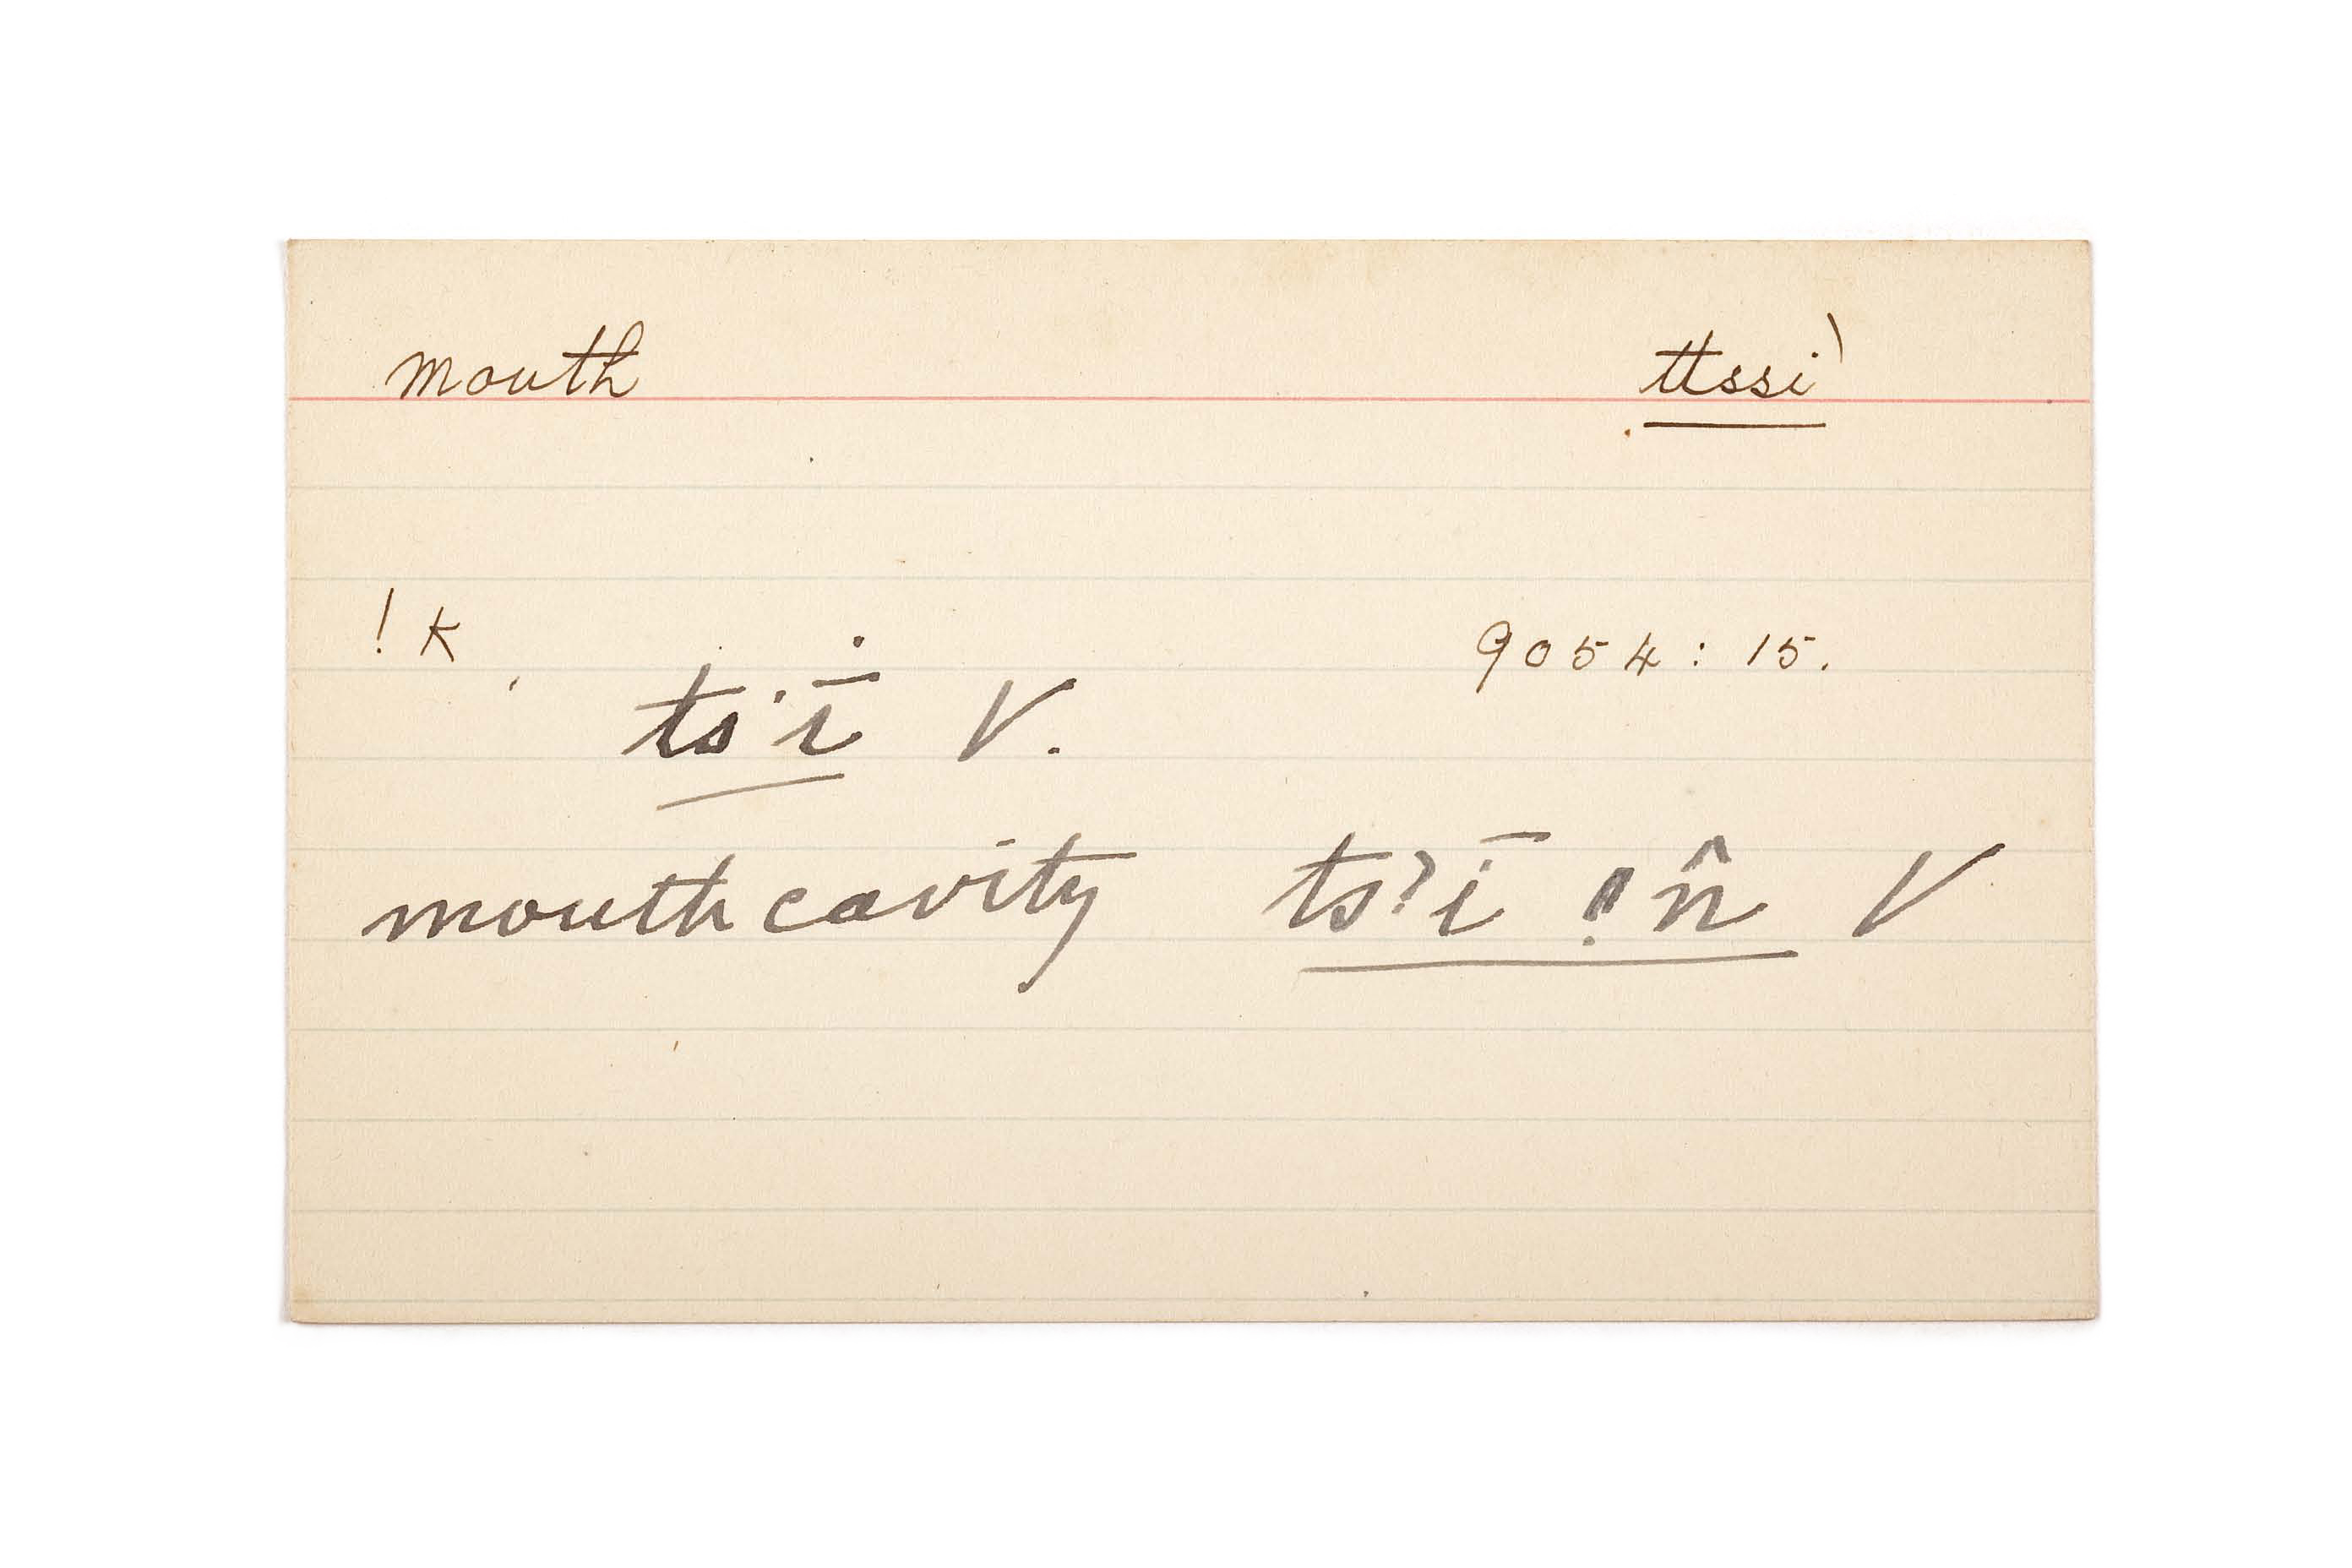 mouth ttssi\
! K 9054: 15.
ts'ī V.
mouth cavity ts?ī !n̂ V